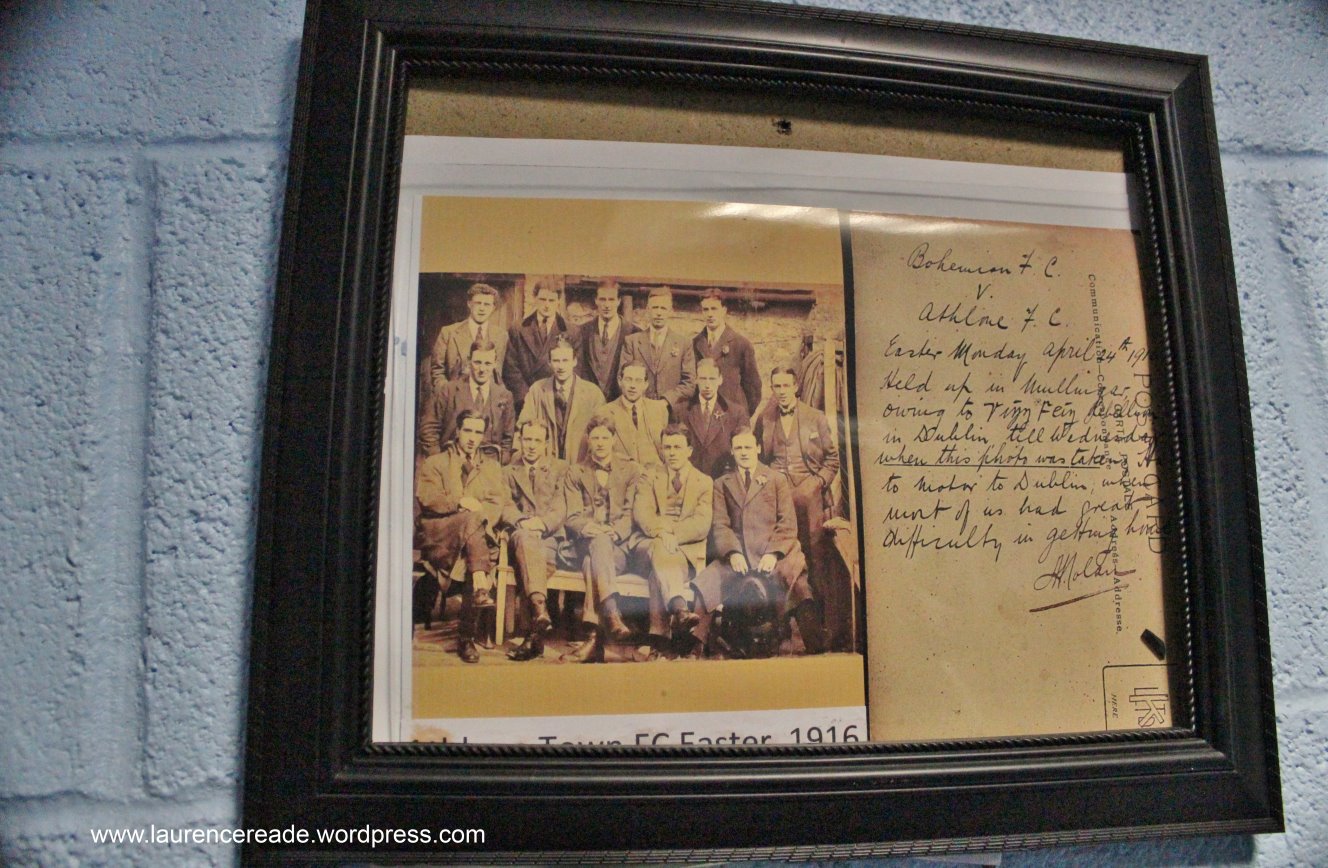 Bohemian F. C.
V
Athlone F. C.
Easter Monday April 24th 191
Held up in Mullingar,
owing to Sinn Fein Rebellion
in Dublin, till Wednesday
when this photo was taken,
to motor to Dublin, when
most of us had great
difficulty in getting home
Nolan
Communication
HERE
Town FC Easter, 1916
www.laurencereade.wordpress.com